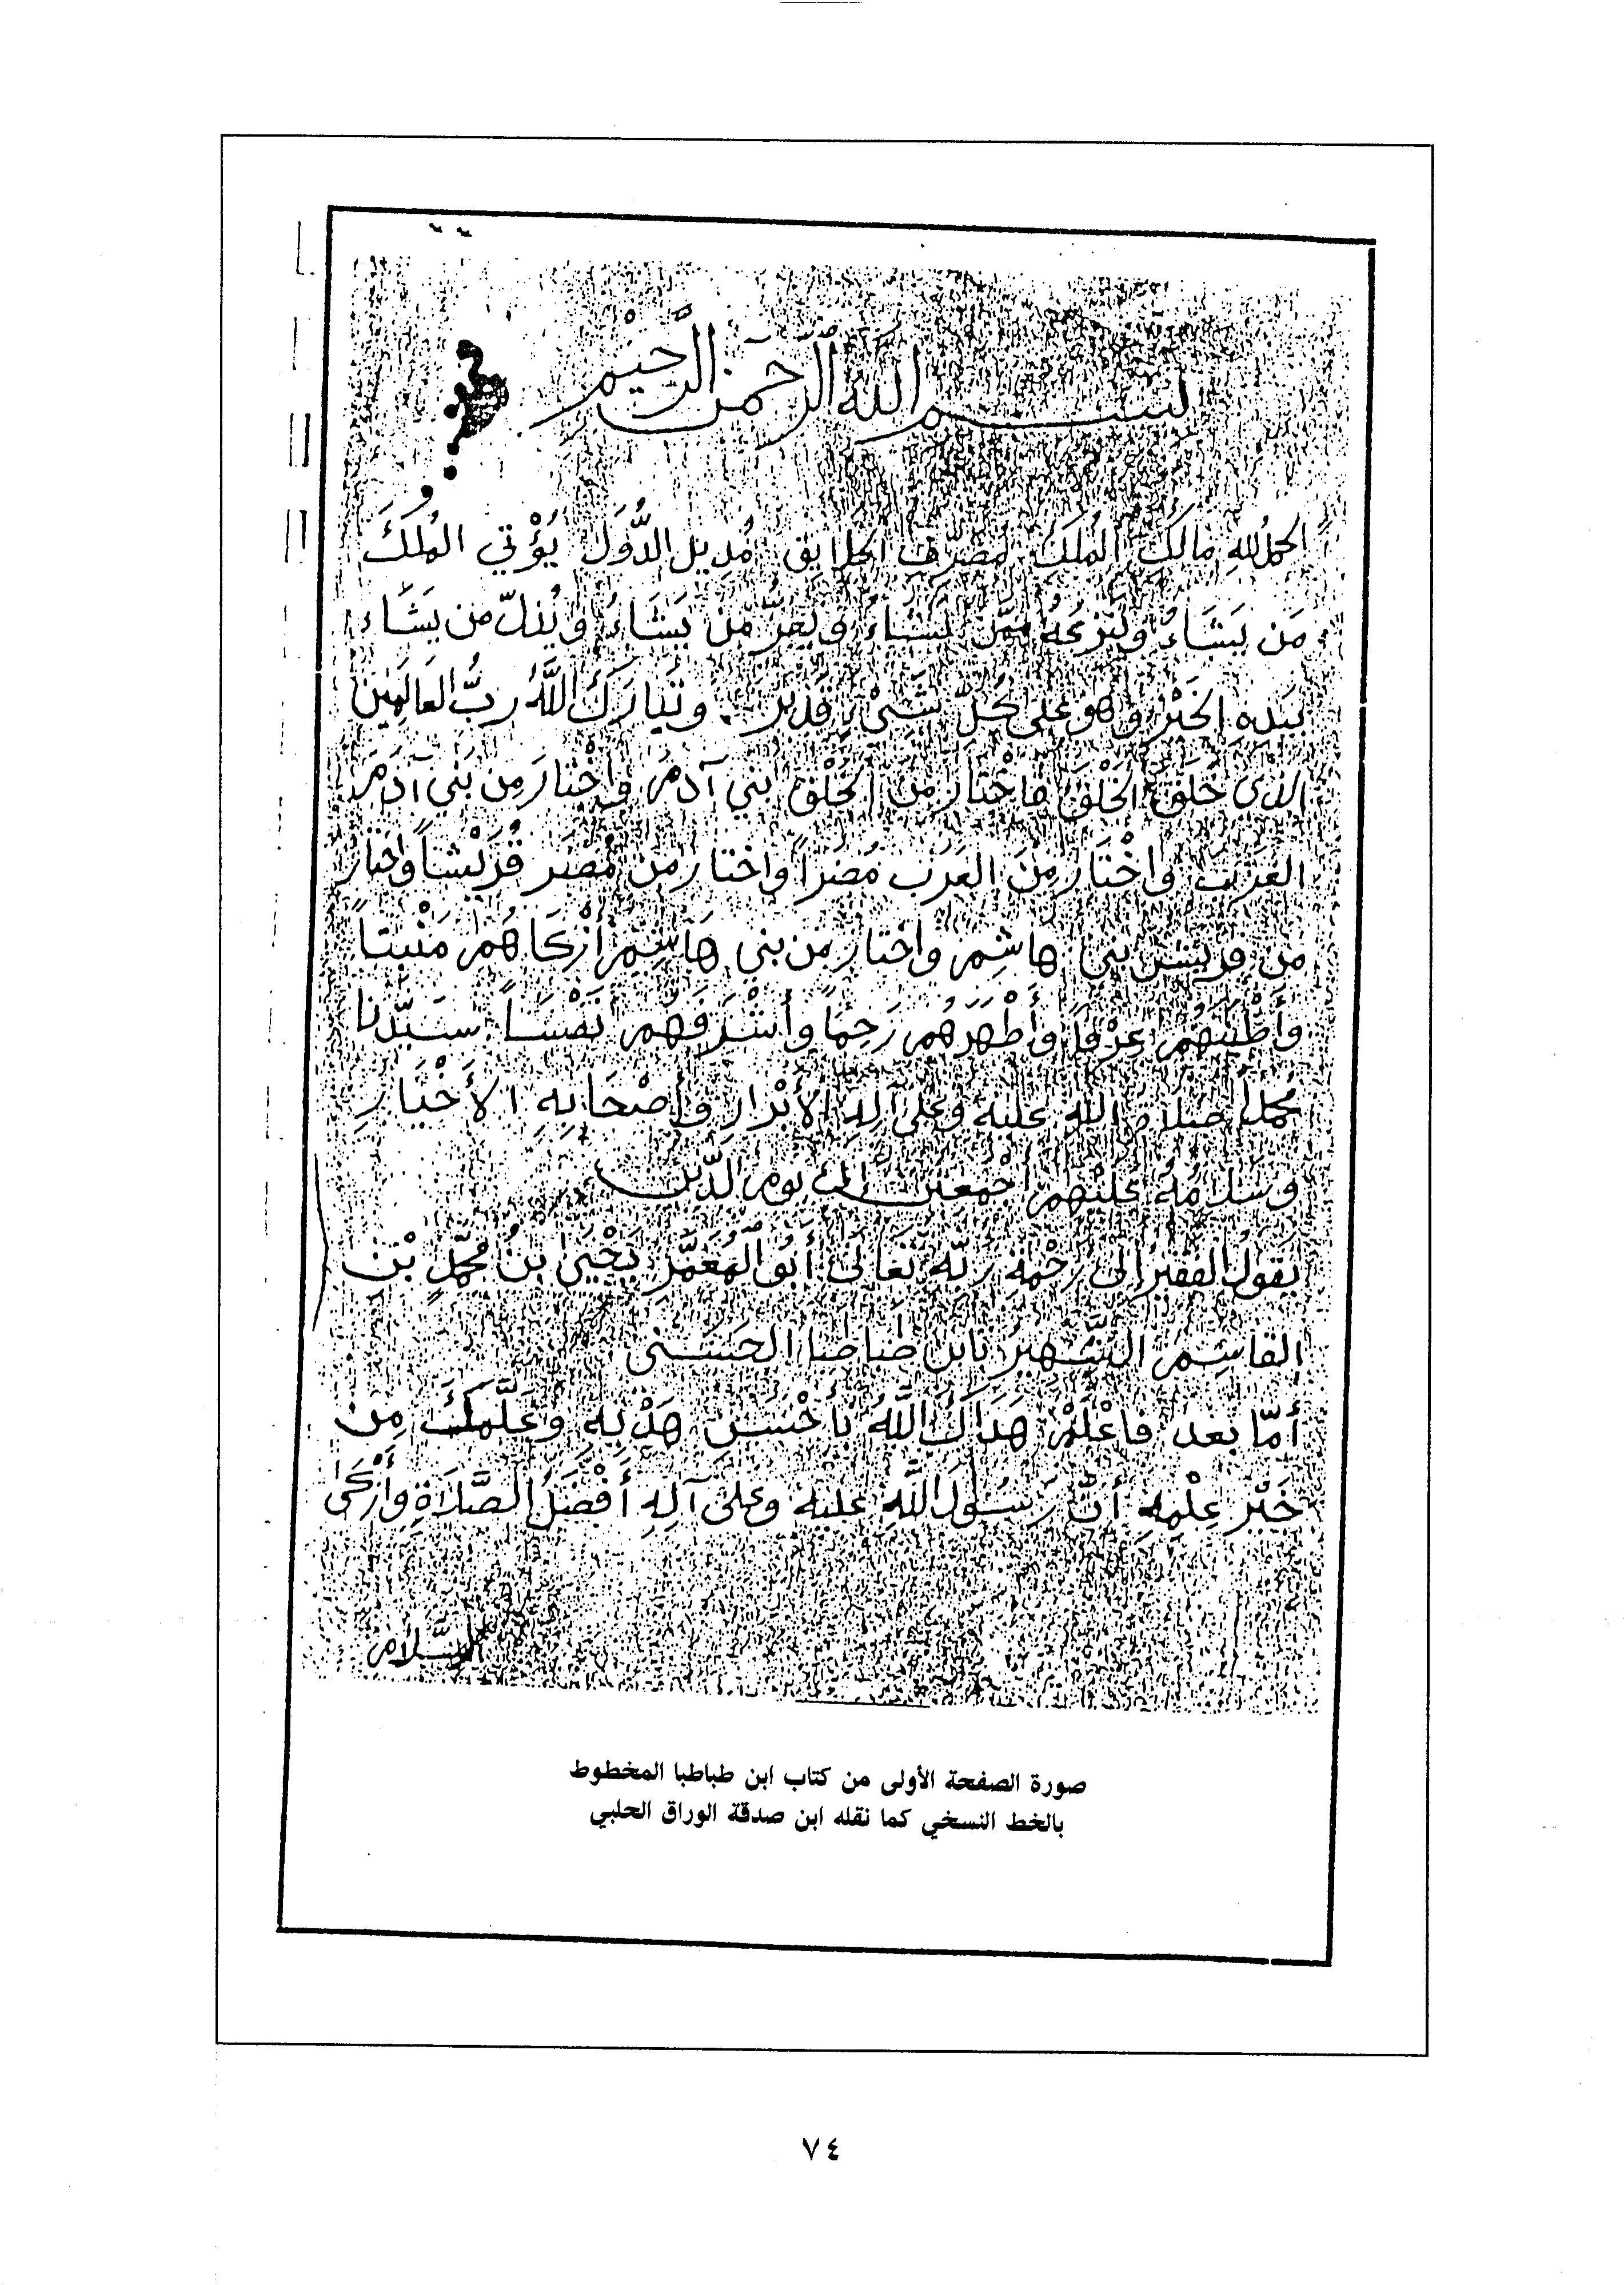 بسم الله الرحمن الرحيم
الحمد لله مالك الملك مصرّف الخلايق مُديل الدُّوَل يُؤْتي المُلكَ
مَن يَشَاءُ ويَنزعُهُ ممّن يَشَاءُ ويُعزُّ مَن يَشَاءُ ويُذلّ من يَشَاء
بيَدِهِ الخَيْرُ وهو على كُلّ شَيْءٍ قَدير. وتَبَارَكَ اللّهُ رَبُّ العَالَمِين
الذي خَلَقَ الخَلْقَ فاخْتَارَ مِنَ الخَلْقِ بَني آدَمَ واخْتارَ مِن بَني آدَمَ
العَرَبَ واخْتَارَ مِنَ العَرَب مُضَراً واختار مِن مُضَر قُرَيْشاً واختار
من قريش بني هاشِم واختار مِن بني هَاشِم أزكاهُم مَنْبتاً
وأَطْيَبَهُم عِرْقاً وأَطْهَرَهُم رَحِمًا وأَشْرَفَهُم نَفْسًا سَيّدنا
محمداً صلاة الله عليه وعلى آلِهِ الأَبْرارِ وأَصْحَابِهِ الأَخْيَارِ
وسَلامُهُ عليْهم أجْمعين إلى يوم الدّين
يقول الفقيرُ إلى رَحْمَةِ رَبّه تَعَالَى أَبُو المُعَمَّرِ يَحْيَى بنُ مُحمّدٍ بْن
القاسِم الشّهِيرُ بابن طباطبا الحَسَنى
أمّا بعد فاعْلَمْ هَدَاكَ اللَّهُ بأَحْسَنِ هَدْيِهِ وعَلَّمكَ مِن
خَيْرِ عِلْمِهِ أنّ رَسُولَ اللَّهِ عليه وعلى آلِهِ أَفْضَلُ الصَّلَاةِ وأَزْكَى
السَّلام
صورة الصفحة الأولى من كتاب ابن طباطبا المخطوط
بالخط النسخي كما نقله ابن صدقة الوراق الحلبي
٧٤